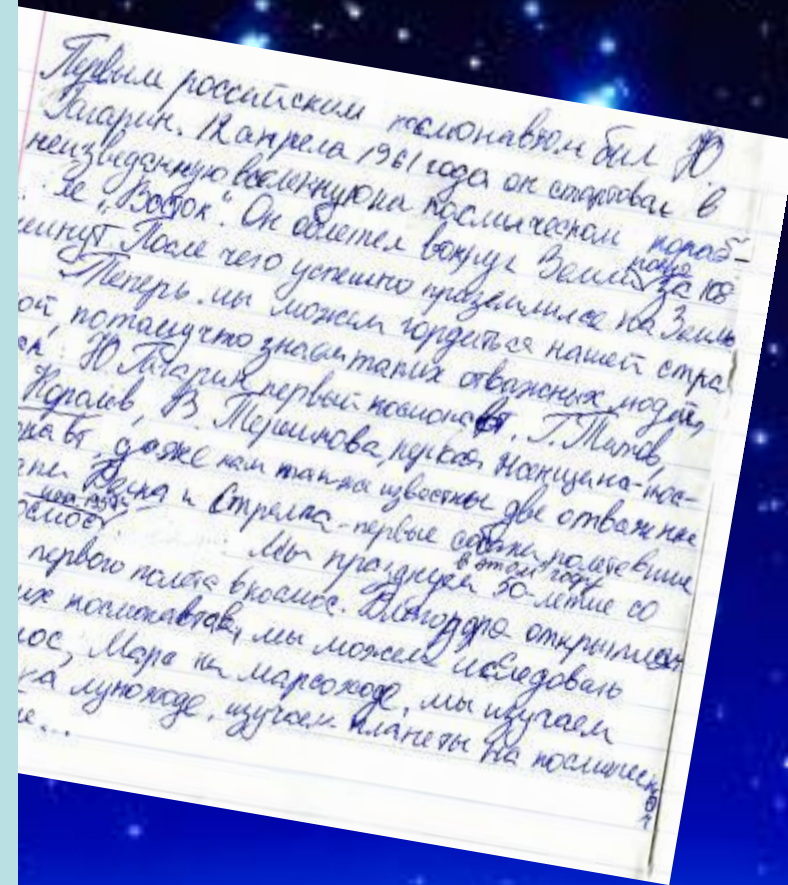 Первым российским космонавтом был Ю.
Гагарин. 12 апреля 1961 года он стартовал в
неизведанную вселенную на космическом кораб-
ле „Восток". Он облетел вокруг Земли за 108
минут После чего успешно приземлился на Землю
Теперь мы можем гордиться нашей стра
ой, потому что знаем таких отважных людей,
как: Ю Гагарин первый космонавт, Г. Титов,
Королев, В. Терешкова, первая женщина-кос-
навт, даже нам также известны две отважные
Белка и Стрелка - первые собаки полетевшие
космос.
Мы празднуем в этом году 50-летие со
первого полета в космос. Благодаря открытиям
их космонавтов, мы можем исследовать
мос, Марс на марсоходе, мы изучаем
на луноходе, изучаем планеты на космическ
ом
е...